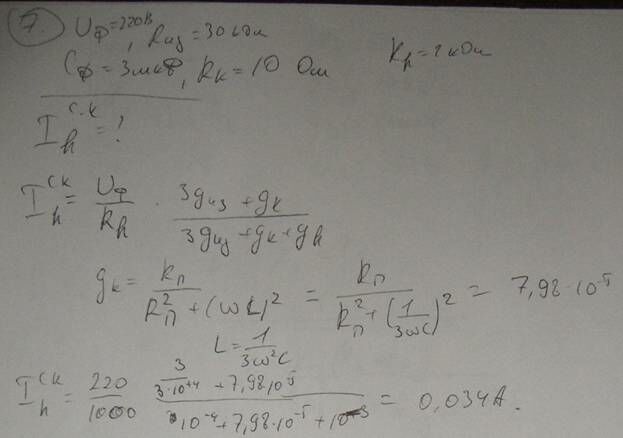 7. Uф=220В, Rиз=30 кОм
Cф=3мкФ, Rк=10 Ом
Rh=1кОм
I_h^с.к = ?
I_h^ск = Uф/Rh · (3gиз + gк)/(3gиз + gк + gh)
gк = Rп/(Rп² + (ωL)²) = Rп/(Rп² + (1/3ωC)²) = 7,98·10⁻⁵
L = 1/(3ω²C)
I_h^ск = 220/1000 · (3/3·10⁺⁴ + 7,98·10⁻⁵)/(10⁻⁴ + 7,98·10⁻⁵ + 10⁻³) = 0,034А.